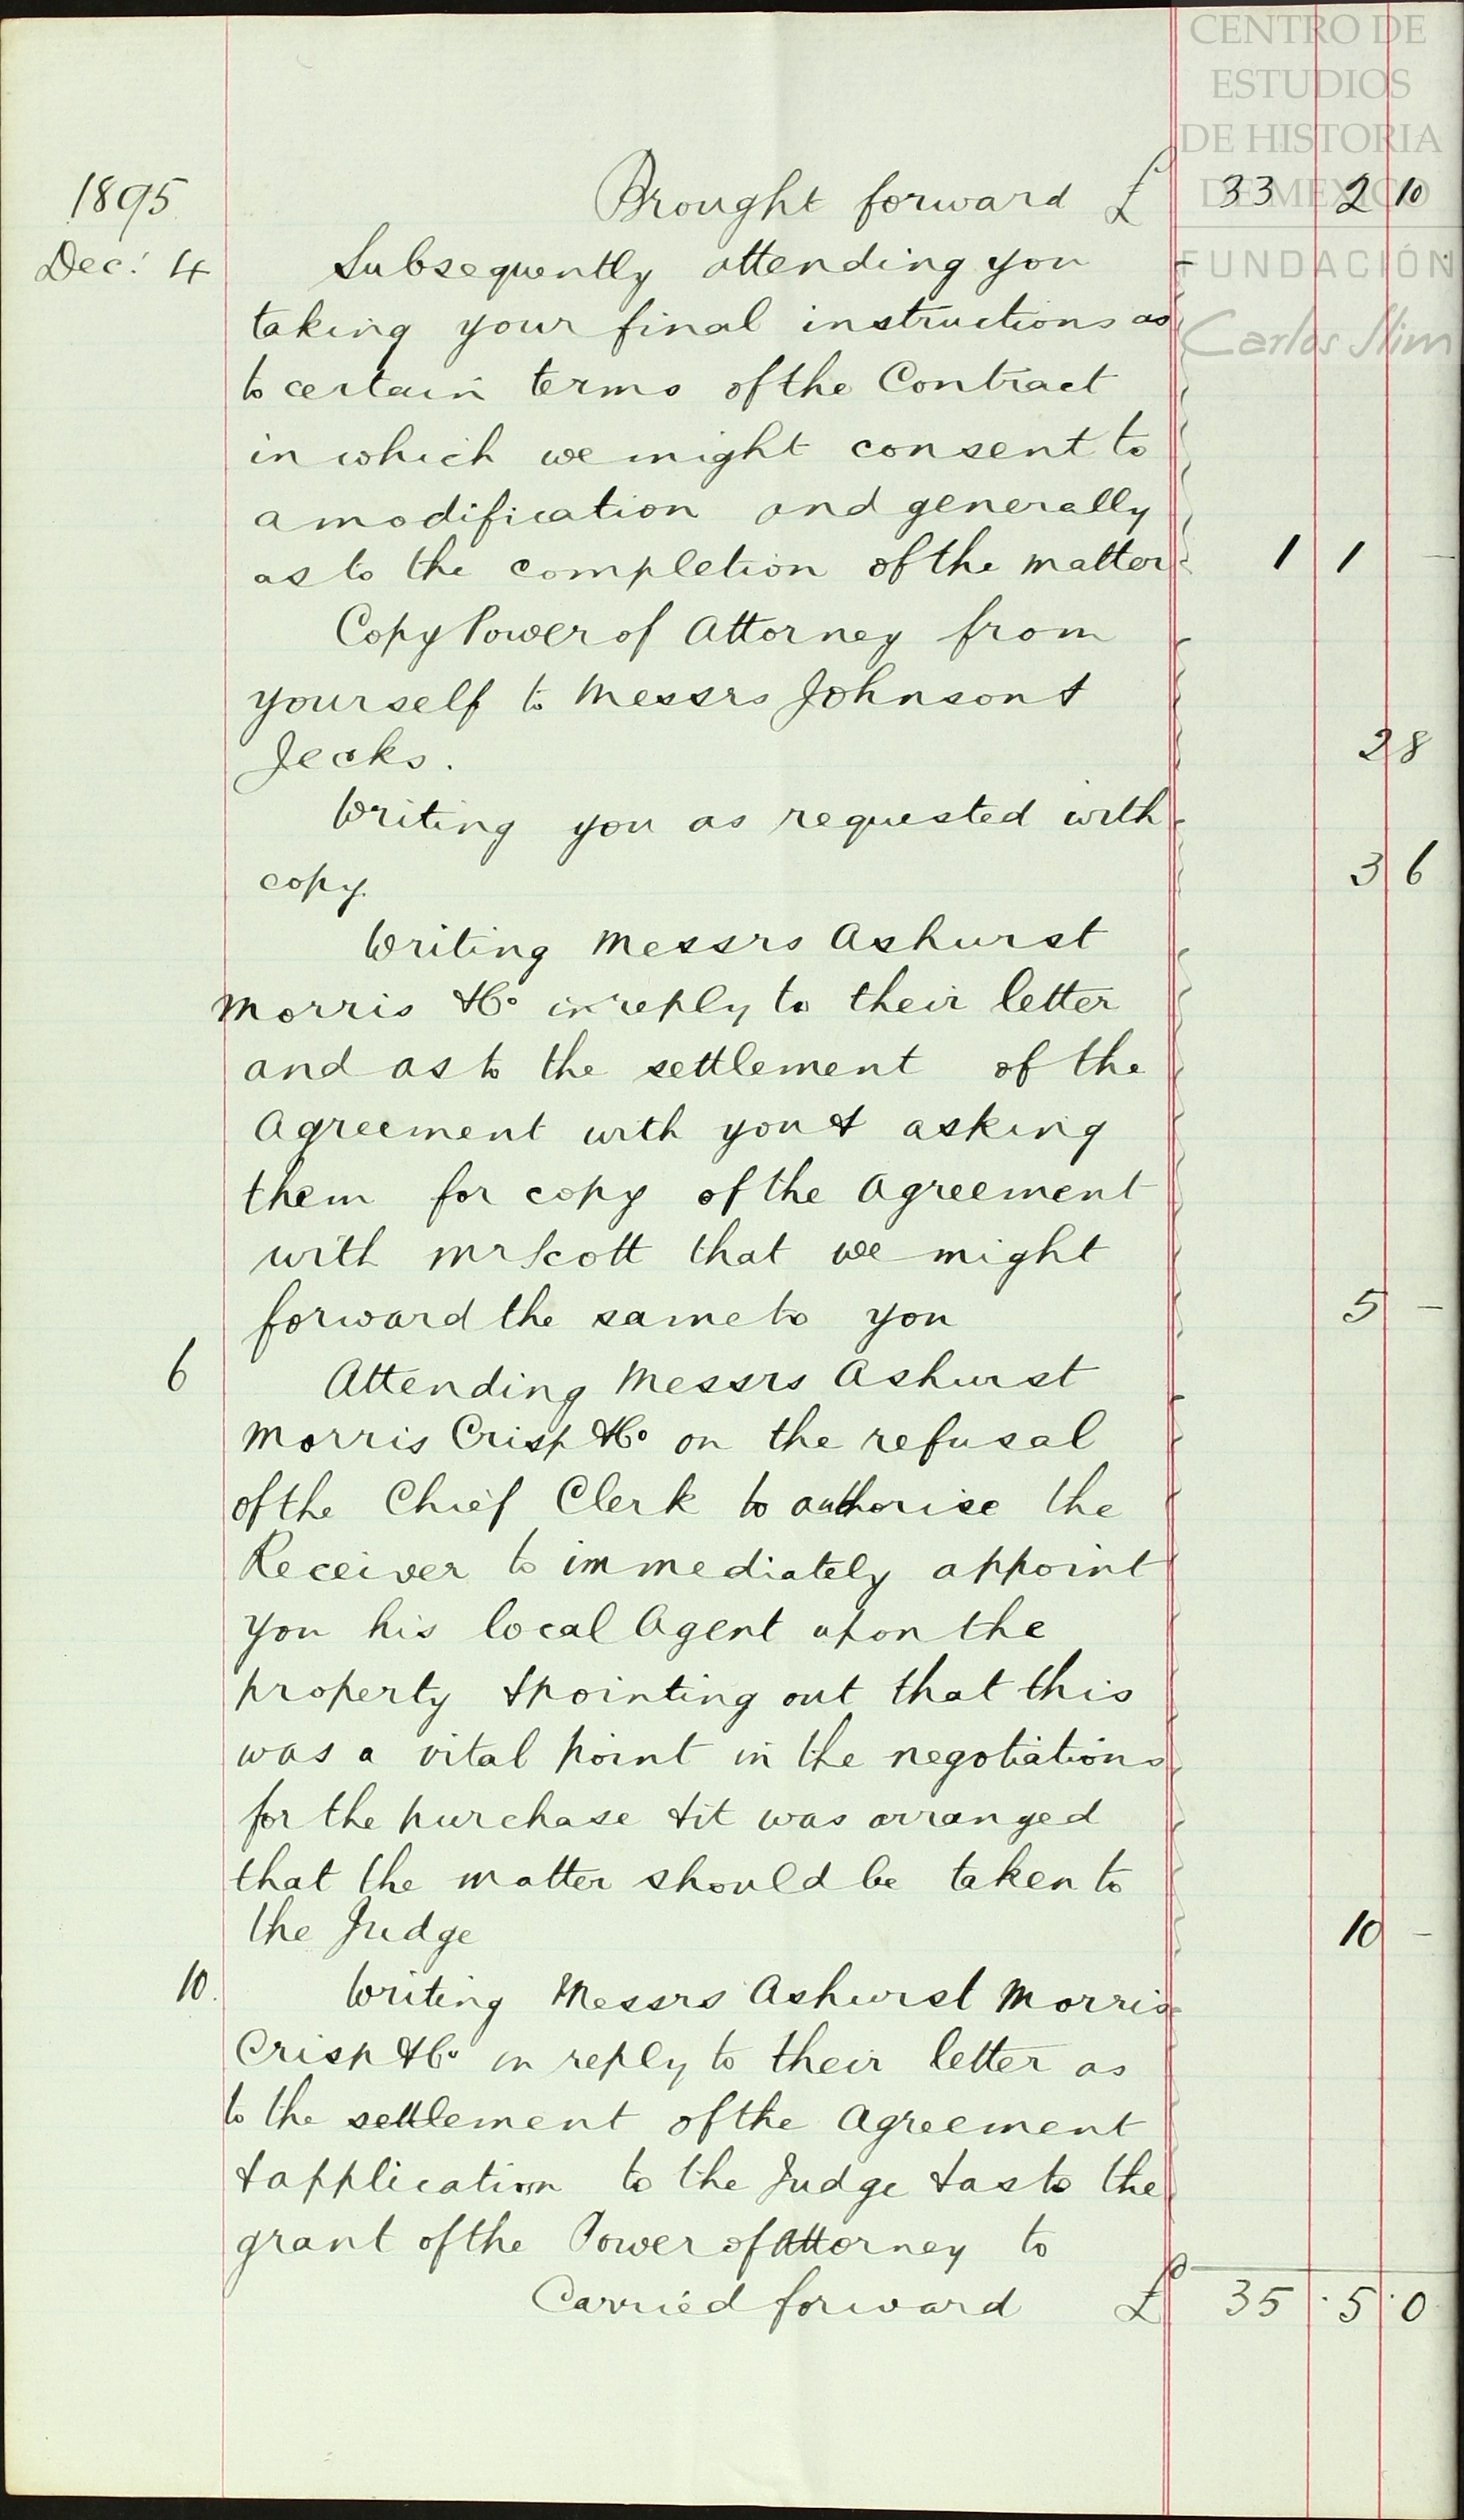 CENTRO DE
ESTUDIOS
DE HISTORIA
DE MEXICO
FUNDACIÓN
Carlos Slim
1895 Brought forward £ 33 2 10
Dec: 4 Subsequently attending you
taking your final instructions as
to certain terms of the Contract
in which we might consent to
a modification and generally
as to the completion of the matter 1 1 -
Copy Power of Attorney from
yourself to Messrs Johnson &
Jecks. 2 8
Writing you as requested with
copy. 3 6
Writing Messrs Ashurst
Morris & Co in reply to their letter
and as to the settlement of the
Agreement with you & asking
them for copy of the Agreement
with Mr Scott that we might
forward the same to you 5 -
6 Attending Messrs Ashurst
Morris Crisp & Co on the refusal
of the Chief Clerk to authorise the
Receiver to immediately appoint
you his local Agent upon the
property & pointing out that this
was a vital point in the negotiations
for the purchase & it was arranged
that the matter should be taken to
the Judge 10 -
10. Writing Messrs Ashurst Morris
Crisp & Co in reply to their letter as
to the settlement of the Agreement
& application to the Judge & as to the
grant of the Power of Attorney to
Carried forward £ 35 . 5 . 0